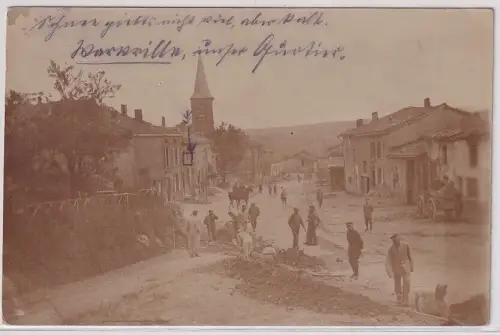 Schnee giebts nicht viel, aber kalt.
Warville, unser Quartier.